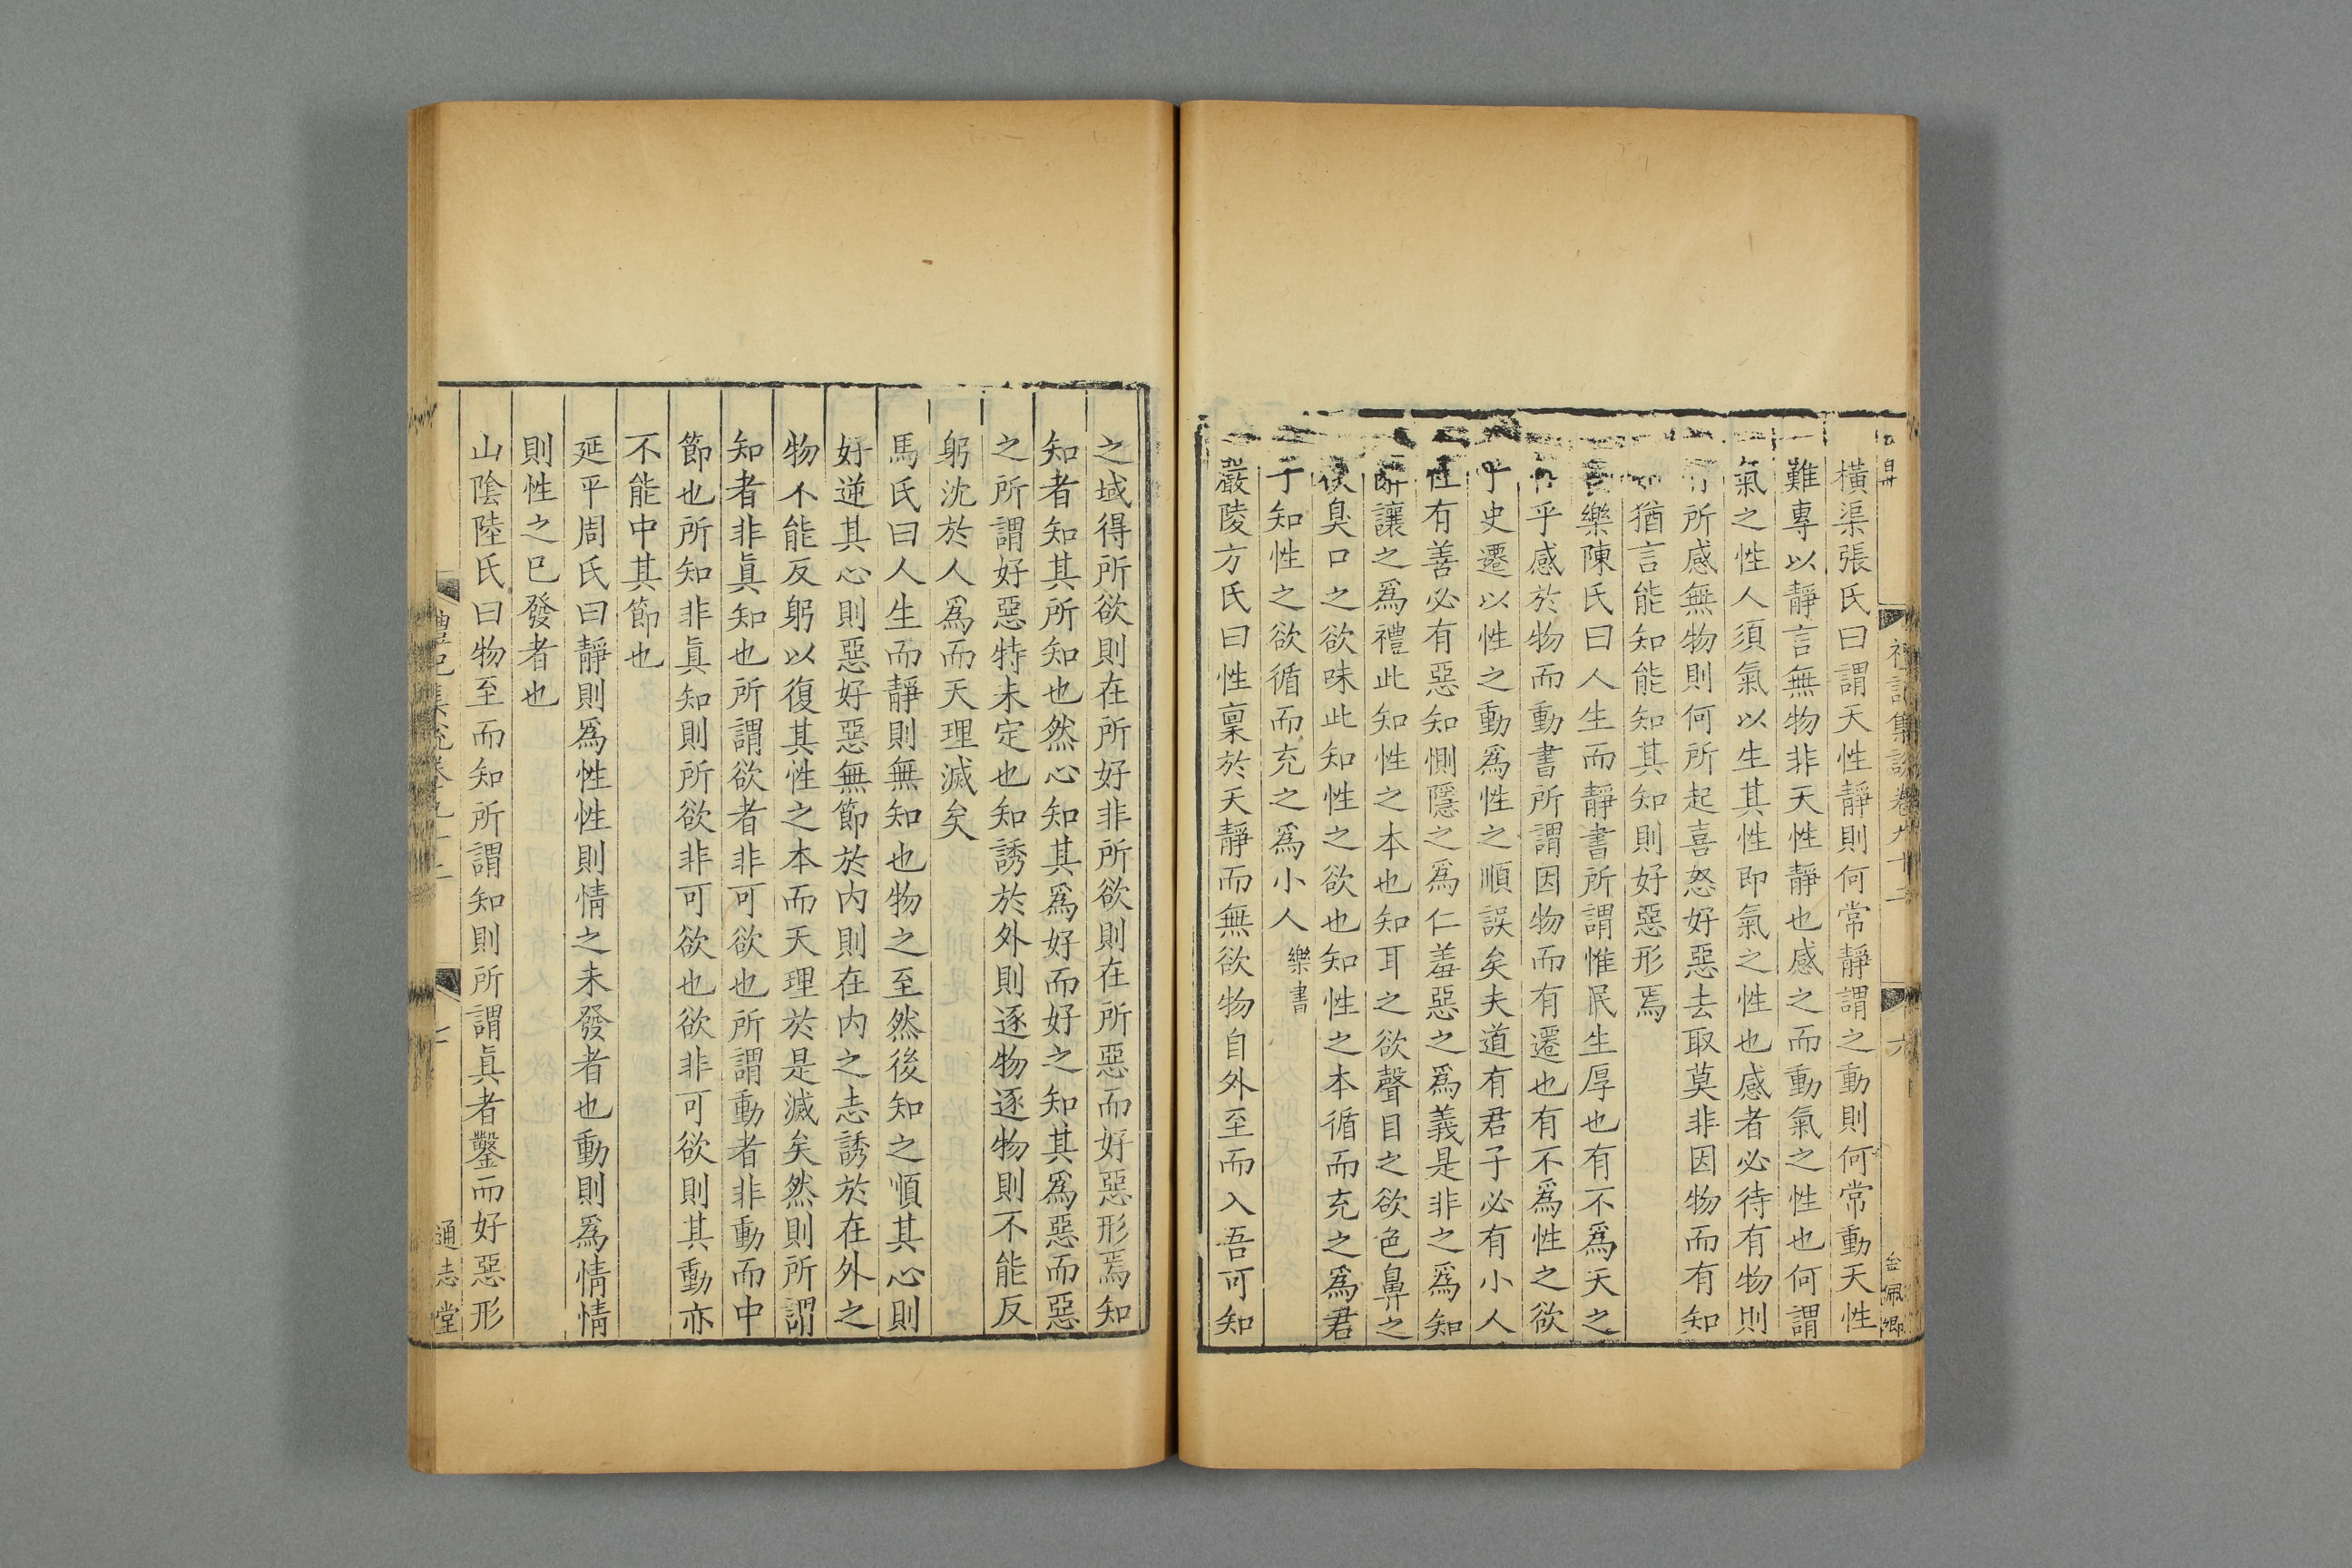 禮記集說卷九十二
六
金佩卿
橫渠張氏曰謂天性靜則何常靜謂之動則何常動天性
難專以靜言無物非天性靜也感之而動氣之性也何謂
氣之性人須氣以生其性即氣之性也感者必待有物則
有所感無物則何所起喜怒好惡去取莫非因物而有知
知猶言能知能知其知則好惡形焉
樂陳氏曰人生而靜書所謂惟民生厚也有不爲天之
乎感於物而動書所謂因物而有遷也有不爲性之欲
乎史遷以性之動爲性之順誤矣夫道有君子必有小人
性有善必有惡知惻隱之爲仁羞惡之爲義是非之爲知
辭讓之爲禮此知性之本也知耳之欲聲目之欲色鼻之
欲臭口之欲味此知性之欲也知性之本循而充之爲君
子知性之欲循而充之爲小人樂書
嚴陵方氏曰性稟於天靜而無欲物自外至而入吾可知
之域得所欲則在所好非所欲則在所惡而好惡形焉知
知者知其所知也然心知其爲好而好之知其爲惡而惡
之所謂好惡特未定也知誘於外則逐物逐物則不能反
躬沈於人爲而天理滅矣
馬氏曰人生而靜則無知也物之至然後知之順其心則
好逆其心則惡好惡無節於內則在內之志誘於在外之
物不能反躬以復其性之本而天理於是滅矣然則所謂
知者非眞知也所謂欲者非可欲也所謂動者非動而中
節也所知非眞知則所欲非可欲也欲非可欲則其動亦
不能中其節也
延平周氏曰靜則爲性性則情之未發者也動則爲情情
則性之已發者也
山陰陸氏曰物至而知所謂知則所謂眞者鑿而好惡形
禮記集說卷九十二
通志堂